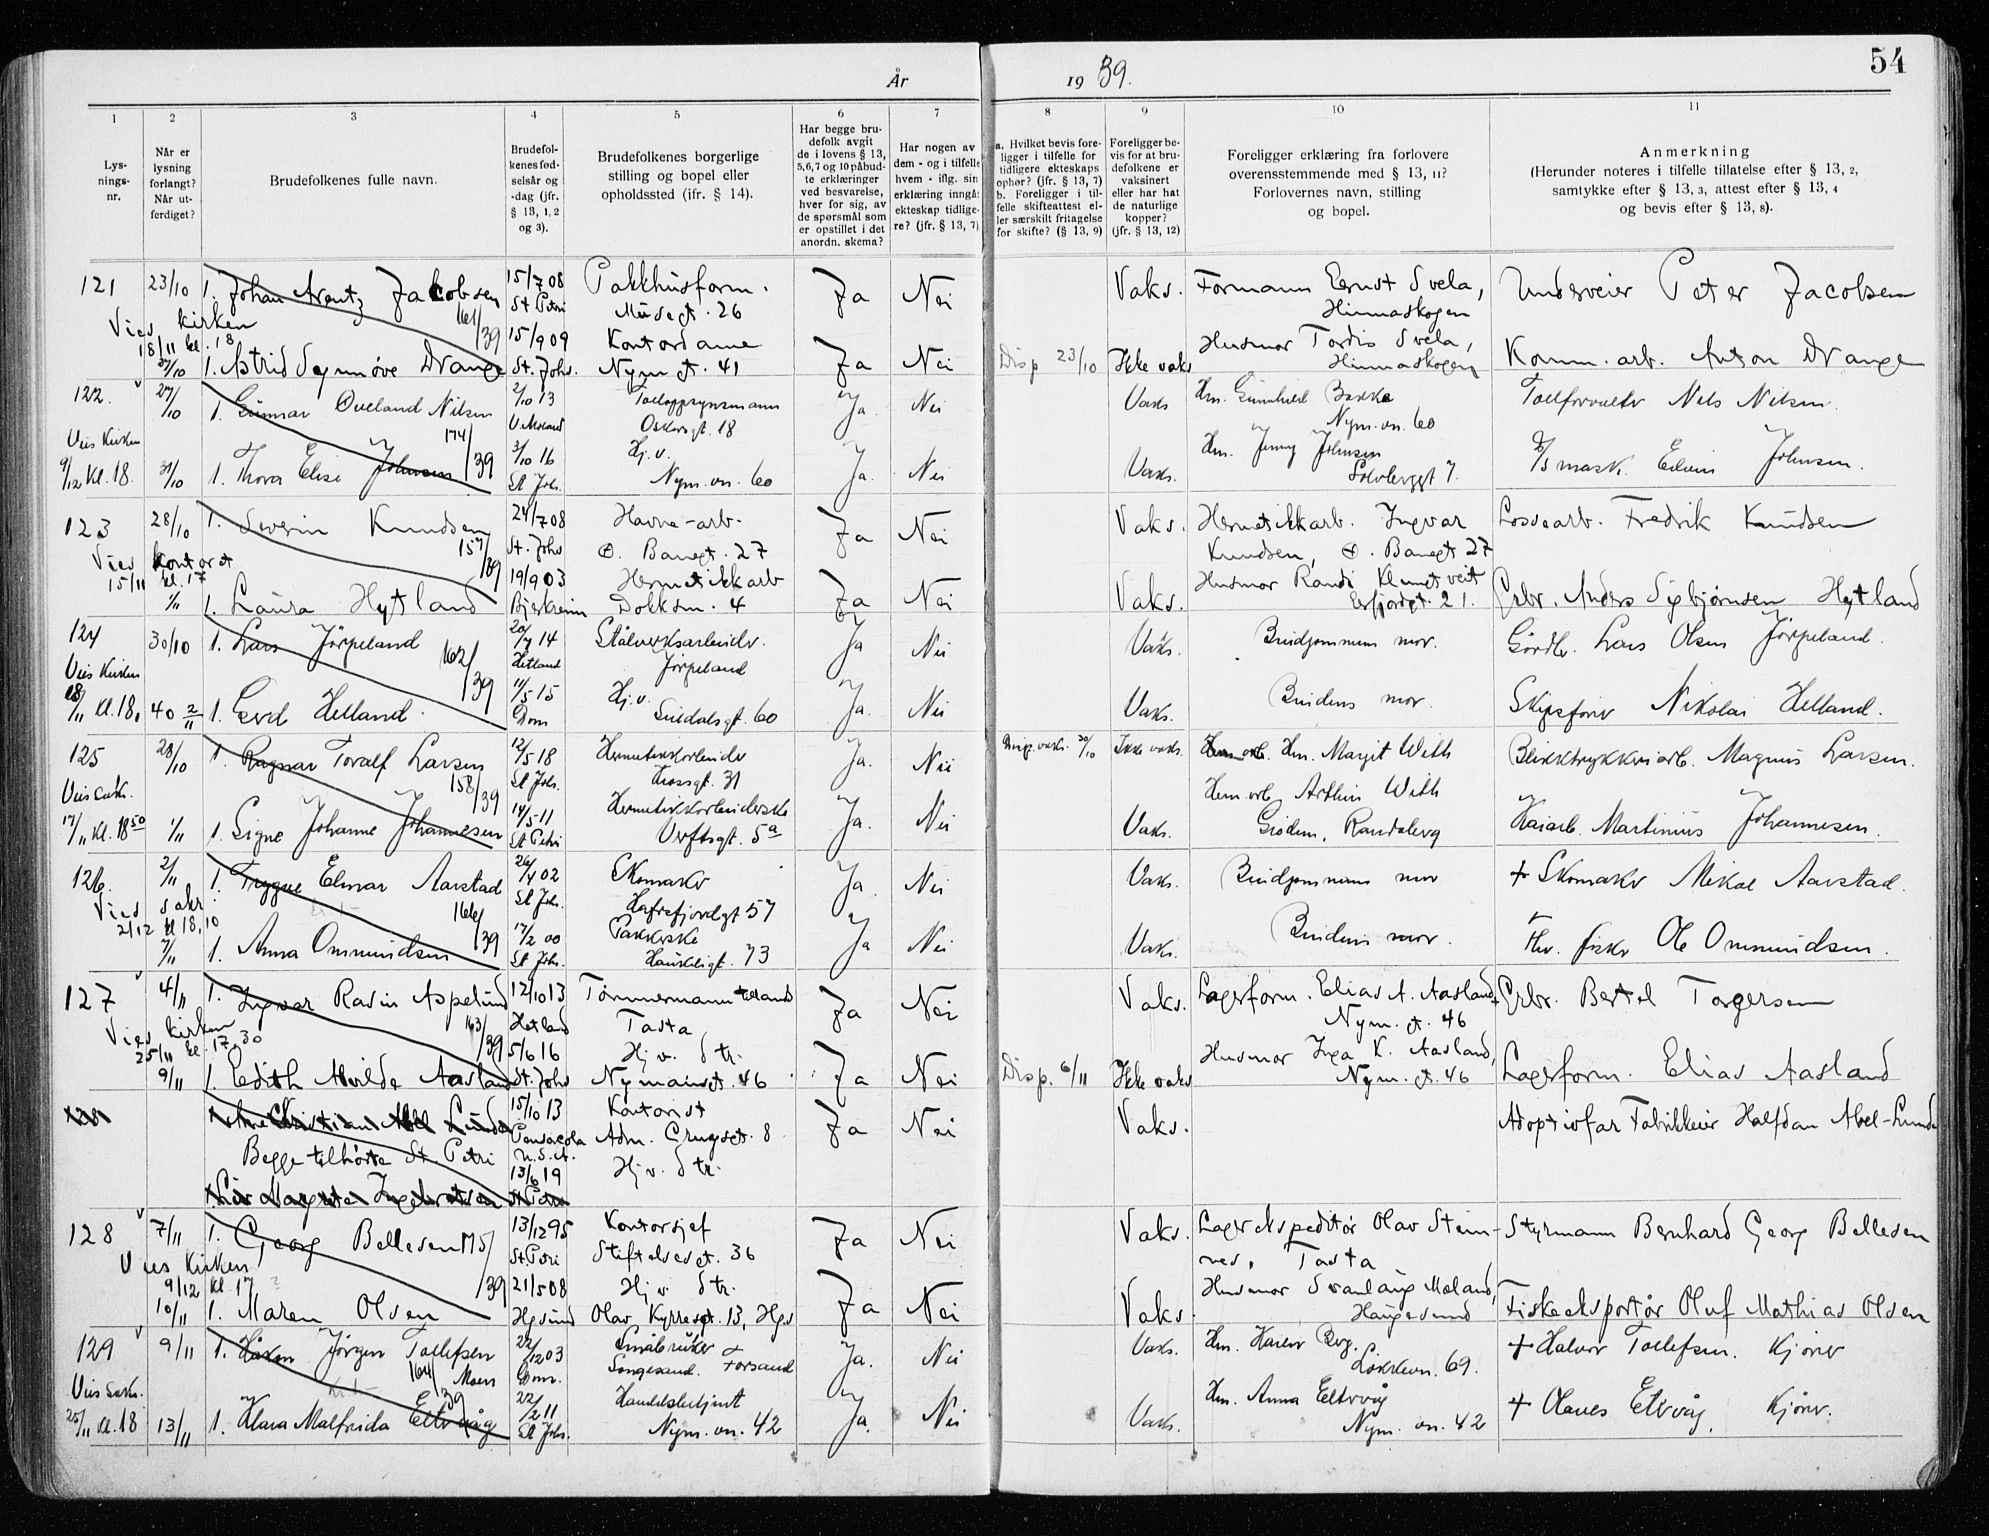 54
År 1939.
1 2 3 4 5 6 7 8 9 10 11
Lys-
nings-
nr.
Når er
lysning
forlangt?
Når ut-
ferdiget?
Brudefolkenes fulle navn.
Brudefol-
kenes fød-
selsår og
-dag (jfr.
§ 13, 1, 2
og 3).
Brudefolkenes borgerlige
stilling og bopel eller
opholdssted (ifr. § 14).
Har begge bru-
defolk avgit
de i lovens § 13,
5,6,7 og 10 påbud-
te erklæringer
ved besvarelse,
hver for sig, av
de spørsmål som
er opstillet i det
anordn. skema?
Har nogen av
dem - og i tilfelle
hvem - iflg. sin
erklæring inngå
ekteskap tidlige-
re? (jfr. § 13, 7)
a. Hvilket bevis fore-
ligger i tilfelle for
tidligere ekteskaps
ophør? (jfr. § 13, 7)
b. Foreligger i til-
felle skifteattest el-
ler særskilt fritagelse
for skifte? (§ 13, 9)
Foreligger be-
vis for at bru-
defolkene er
vaksinert
eller har hat
de naturlige
kopper?
(jfr. § 13, 12)
Foreligger erklæring fra forlovere
overensstemmende med § 13, 11?
Forlovernes navn, stilling
og bopel.
Anmerkning
(Herunder noteres i tilfelle tillatelse efter § 13, 2,
samtykke efter § 13, 3, attest efter § 13, 4
og bevis efter § 13, 8).
121 23/10 1. Johan Arentz Jacobsen 15/7 08 Pakkhusform. Ja Nei Vaks. Formann Ernst Svela, Underveier Peter Jacobsen
St Petri Muségt. 26 Hinnaskogen
Vies kirken 161/39 15/9 09 Kontordame Husmor Tordis Svela,
18/11 kl. 18
27/10 1. Astrid Synnøve Drange St. Johs. Nym gt. 41 Ja Nei Disp 23/10 Ikke vaks Hinnaskogen Komm. arb. Anton Drange
122 27/10 1. Gunnar Øveland Nilsen 2/10 13 Tolloppsynsmann Ja. Nei Vaks Hm. Gunnhild Bakke Tollforvalter Nils Nilsen.
Oskarsgt. 18 Nym. vn. 60
Vies Kirken 174/39 3/10 16 Hj. v. Hm. Jenny Johnsen
9/12 Kl. 18. 31/10 1. Thora Elise Johnsen St Johs. Nym. vn. 60 Ja. Nei Vaks. 7. mask. Edvin Johnsen.
123 28/10 1. Severin Knudsen 24/7 08 Havne-arb. Ja Nei Vaks. Hermetikkarb. Ingvar Lossearb. Fredrik Knudsen
St. Johs Ø. Banegt. 27 Knudsen, Ø. Banegt 27
Vies kontoret 157/39 19/9 03 Hermetikkarb Husmor Randi Klunetveit
15/11 kl. 17
1/11 1. Laura Hytland Bjerkreim Dokksm. 4 Ja Nei Vaks. Erfjordgt. 21. Grbr. Anders Sigbjørnsen Hytland
124 30/10 1. Lars Jörpeland 20/7 14 Stålverksarbeider. Ja Nei Vaks. Brudgommens mor. Gårdbr. Lars Olsen Jörpeland.
Hetland Jörpeland
Vies Kirken 162/39 11/5 15 Hj. v.
18/11 Kl. 18, 40 2/11 1. Gerd Helland. Dom Suldalsgt. 60 Ja. Nei Vaks. Brudens mor. Skipsfører Nikolai Helland.
125 28/10 1. Ragnar Toralf Larsen 12/5 18 Hermetikkarbeider Ja. Nei Disp. vaks. 30/10 Ikke vaks. Hm. Margit With Blikktrykkeriarb. Magnus Larsen.
St Johs. Krossgt. 31
Vies sakr. 158/39 14/5 11 Hermetikkarbeiderske Herm. arb. Arthur With
17/11 Kl. 18 50 1/11 1. Signe Johanne Johannesen St Petri Verftsgt. 5a Ja. Nei Vaks. Grødem, Randaberg Kaiarb. Martinius Johannesen.
126. 2/11 1. Trygve Elmar Aarstad 26/4 02 Skomaker Ja. Nei Vaks. Brudgommens mor + Skomaker Mikal Aarstad.
St Johs. Hafrsfjordgt 57
Vies sakr. 166/39 17/2 00 Pakkerske
2/12 kl 18,10
7/11 1. Anna Ommundsen St Johs. Haukeligt. 73 Ja Nei Vaks. Brudens mor. Fhv. fisker Ole Ommundsen.
127 4/11 1. Ingvar Rasin Aspelund 12/10 13 Tømmermann Ja Nei Vaks. Lagerform. Elias A. Aasland Grbr. Bertel Torgersen
Hetland Tasta Nym. gt. 46
Vies kirken 163/39 5/6 16 Hj v. Str. Husmor Inga K. Aasland,
25/11 kl. 17.30
9/11 1. Edith Alvilde Aasland St. Johs Nymansgt. 46 Ja Nei Disp. 6/11 Ikke vaks Nym. gt. 46 Lagerform. Elias Aasland
128 Arne Christian Abel Lunde 15/10 13 Kontorist Ja Nei Vaks. Adoptivfar Fabrikkeier Halfdan Abel-Lunde
Pensacola Adm. Crugsgt. 8
U.S.A.
Begge tilhörte St. Petri 13/6 19 Hj v. Str.
Liv Margrete Ingebretsen St Petri
128 7/11 1. Georg Bellesen 175/39 13/12 95 Kontorsjef Ja Nei Vaks. Lagerekspeditör Olav Stein- Styrmann Bernhard Georg Bellesen
St. Petri Stiftelsesgt. 36 nes, Tasta
Vies Kirken 21/5 08 Hj v. Str. Husmor Svanlaug Moland,
9/12 kl 17
10/11 1. Maren Olsen Hgsund Olav Kyrresgt. 13, Hgs Ja Nei Vaks. Haugesund Fiskeeksportör Oluf Mathias Olsen
129 9/11 1. Håkon Jörgen Tollefsen 22/12 03 Småbruker Ja. Nei Vaks. Hm. Berg. + Halvor Tollefsen. Kjörer
Dom. Songesand. Forsand Lökkevn. 69.
Vies sakr. 164/39 Moen 22/2 11 Handelsbetjent Hm. Anna Eltervåg
25/11 Kl. 18 13/11 1. Klara Malfrida Eltervåg St Johs. Nym. vn. 42 Ja. Nei Vaks. Nym. vn. 42 + Olaves Eltervåg, Kjörer.